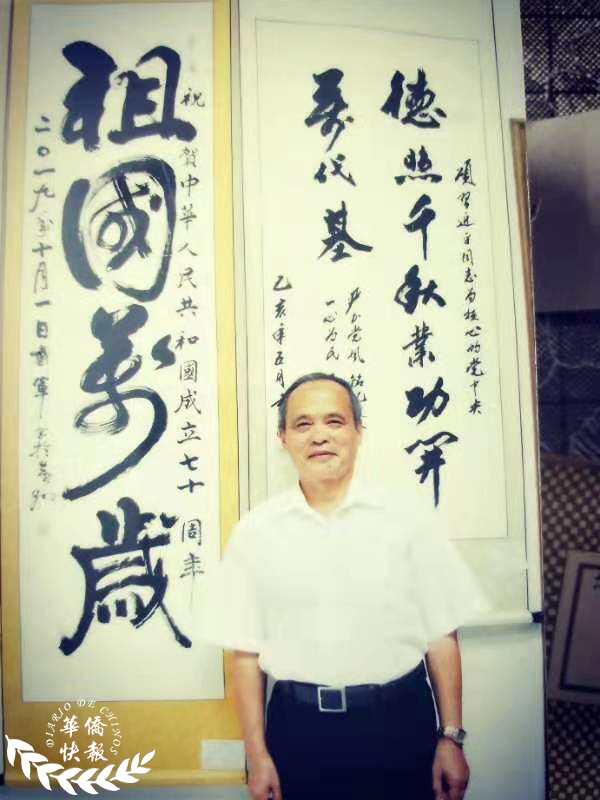 颂習近平同志为核心的党中央
德照千秋業功開
萬代基
严正党风
一心为民
乙亥年五月
祝賀中華人民共和國成立七十周年
祖國萬歲
二〇一九年十月一日
DIARIO DE CHINOS
華僑
快報